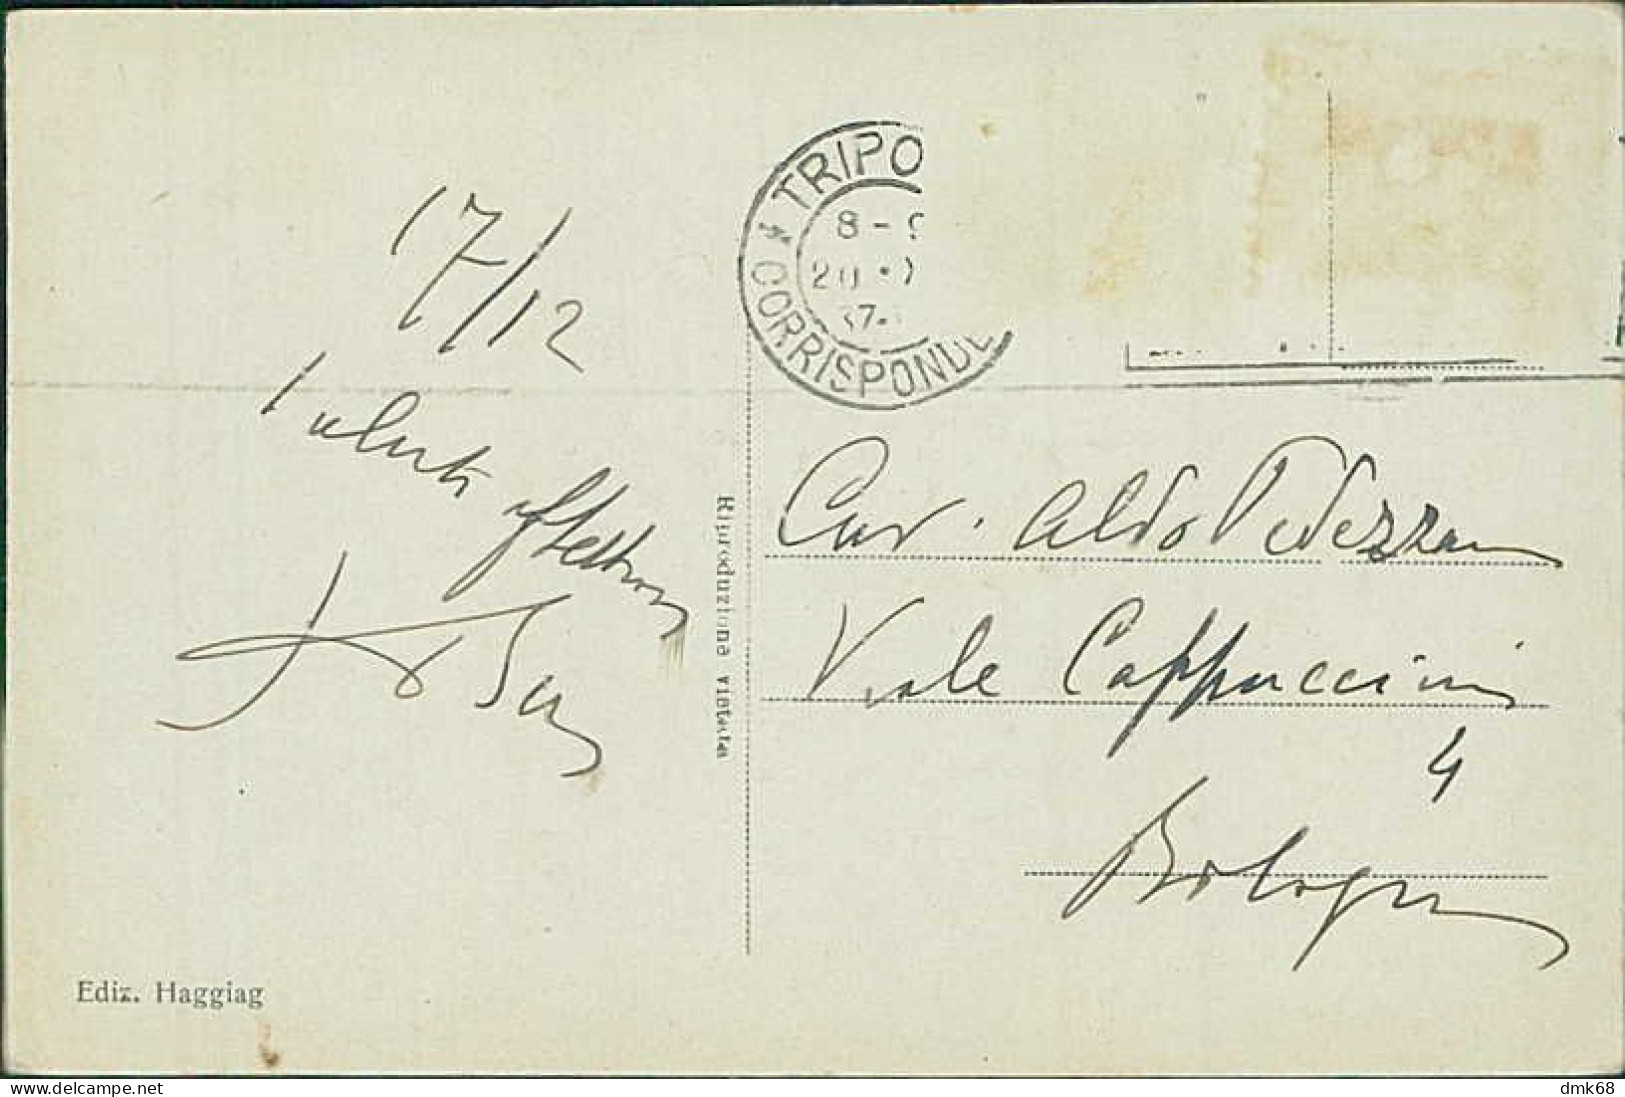 17/12
Saluti affettuosi
TRIPO
8-9
20
37
CORRISPONDE
Cav. Aldo Pedezzani
Viale Cappuccini
4
Bologna
Riproduzione vietata
Ediz. Haggiag
delcampe.net
dmk68